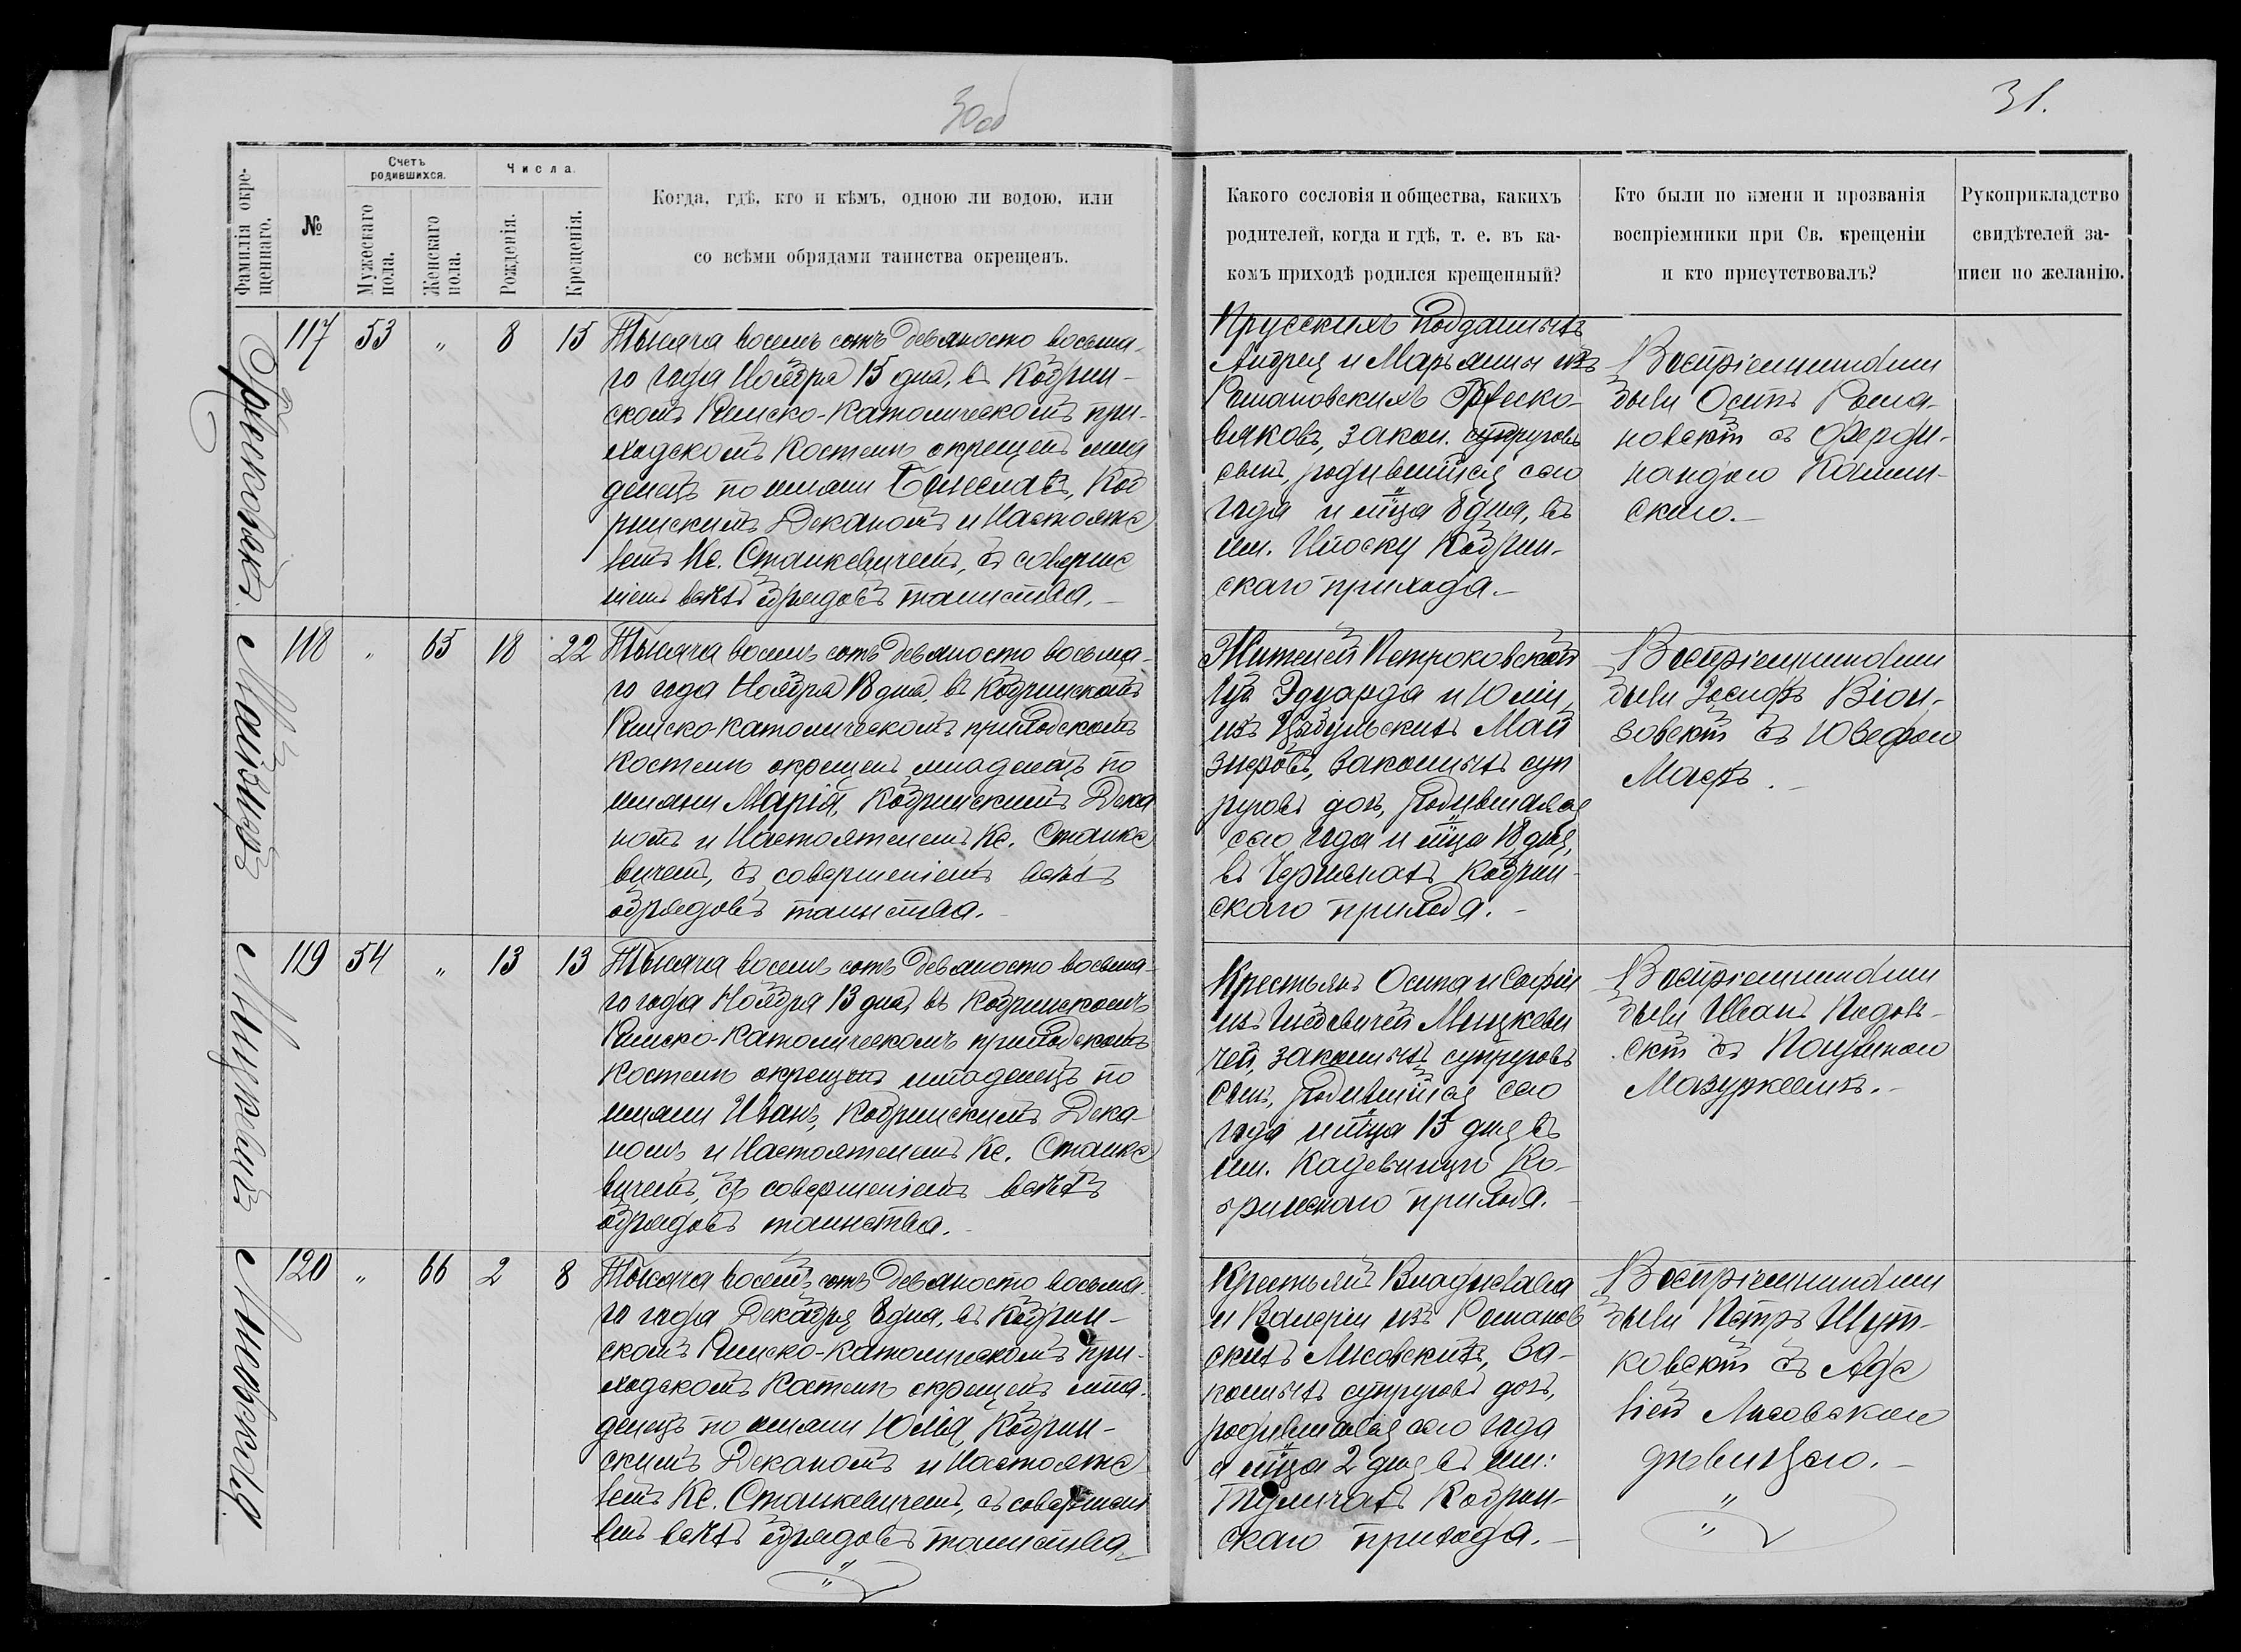 30об
31.
Фамилія окре-
щеннаго.
№
Счетъ
родившихся.
Мужескаго
пола.
Женскаго
пола.
Числа.
Рожденія.
Крещенія.
Когда, гдѣ, кто и кѣмъ, одною ли водою, или
со всѣми обрядами таинства окрещенъ.
Какого сословія и общества, какихъ
родителей, когда и гдѣ, т. е. въ ка-
комъ приходѣ родился крещенный?
Кто были по имени и прозванія
воспріемники при Св. крещеніи
и кто присутствовалъ?
Рукоприкладство
свидѣтелей за-
писи по желанію.
117 53 " 8 15
Тысяча восемь сотъ девяносто восьма-
го года Ноября 15 дня, въ Кобрин-
скомъ Римско-Католическомъ при-
ходскомъ Костелѣ окрещенъ мла
денецъ по имени Болеславъ, Коб
ринскимъ Деканомъ и Настояте
лемъ Кс. Станкевичемъ, съ соверше
ніемъ всѣхъ обрядовъ таинства.-
Прусскихъ подданныхъ
Андрея и Марьянны изъ
Романовскихъ
вяковъ, закон. супруговъ
сынъ, родившійся сего
года и м-ца 8 дня, въ
им. Кобрин-
скаго прихода.-
Воспріемниками
были Осипъ Рома-
новскій съ Ферди-
нандою Камин-
скою.-
Майзнеръ
118 " 65 18 22
Тысяча восемь сотъ девяносто восьма-
го года Ноября 18 дня, въ Кобринскомъ
Римско-католическомъ приходскомъ
Костелѣ окрещенъ младенецъ по
имени Марія, Кобринскимъ Дека
номъ и Настоятелемъ Кс. Станке
вичемъ, съ совершеніемъ всѣхъ
обрядовъ таинства.-
Жителей Петроковской
губ. Эдуарда и Юліи,
изъ Цыбульскихъ Май
знеровъ, законныхъ суп
руговъ дочь, родившаяся
сего года и м-ца 18 дня,
въ Кобрин-
скаго прихода.-
Воспріемниками
были Іосифъ
съ Юзефою
119 54 " 13 13
Тысяча восемь сотъ девяносто восьма-
го года Ноября 13 дня, въ Кобринскомъ
Римско-Католическомъ приходскомъ
Костелѣ окрещенъ младенецъ по
имени Иванъ, Кобринскимъ Дека-
номъ и Настоятелемъ Кс. Станке
вичемъ, съ совершеніемъ всѣхъ
обрядовъ таинства.-
Крестьянъ Осипа и Софіи
изъ Мицкеви
чей, законныхъ супруговъ
сынъ, родившійся сего
года и м-ца 13 дня въ
им. Ко-
бринскаго прихода.-
Воспріемниками
были Иванъ
съ Паулиною
Лисовская
120 " 66 2 8
Тысяча восемь сотъ девяносто восьма-
го года Декабря 8 дня, въ Кобрин-
скомъ Римско-Католическомъ при-
ходскомъ Костелѣ окрещенъ мла-
денецъ по имени Юлія, Кобрин-
скимъ Деканомъ и Настояте
лемъ Кс. Станкевичемъ, съ совершені
емъ всѣхъ обрядовъ таинства.-
Крестьянъ Владислава
и Валеріи изъ Романов
скихъ Лисовскихъ, за-
конныхъ супруговъ дочь,
родившаяся сего года
и м-ца 2 дня въ им:
Кобрин-
скаго прихода.-
Воспріемниками
были Петръ Шут-
ковскій съ Аде
лей Лисовскою
дѣвицею.-